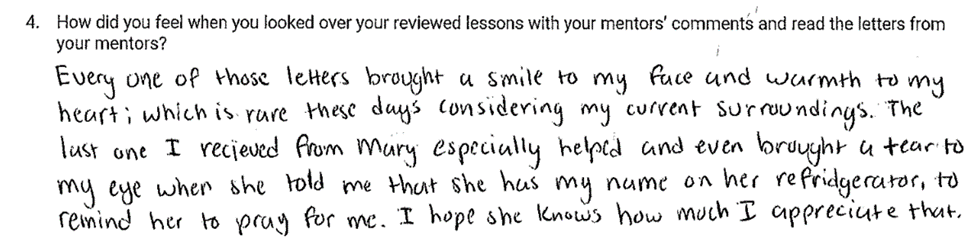 4. How did you feel when you looked over your reviewed lessons with your mentors' comments and read the letters from
your mentors?
Every one of those letters brought a smile to my face and warmth to my
heart; which is rare these days considering my current surroundings. The
last one I recieved from Mary especially helped and even brought a tear to
my eye when she told me that she has my name on her refridgerator, to
remind her to pray for me. I hope she knows how much I appreciate that.